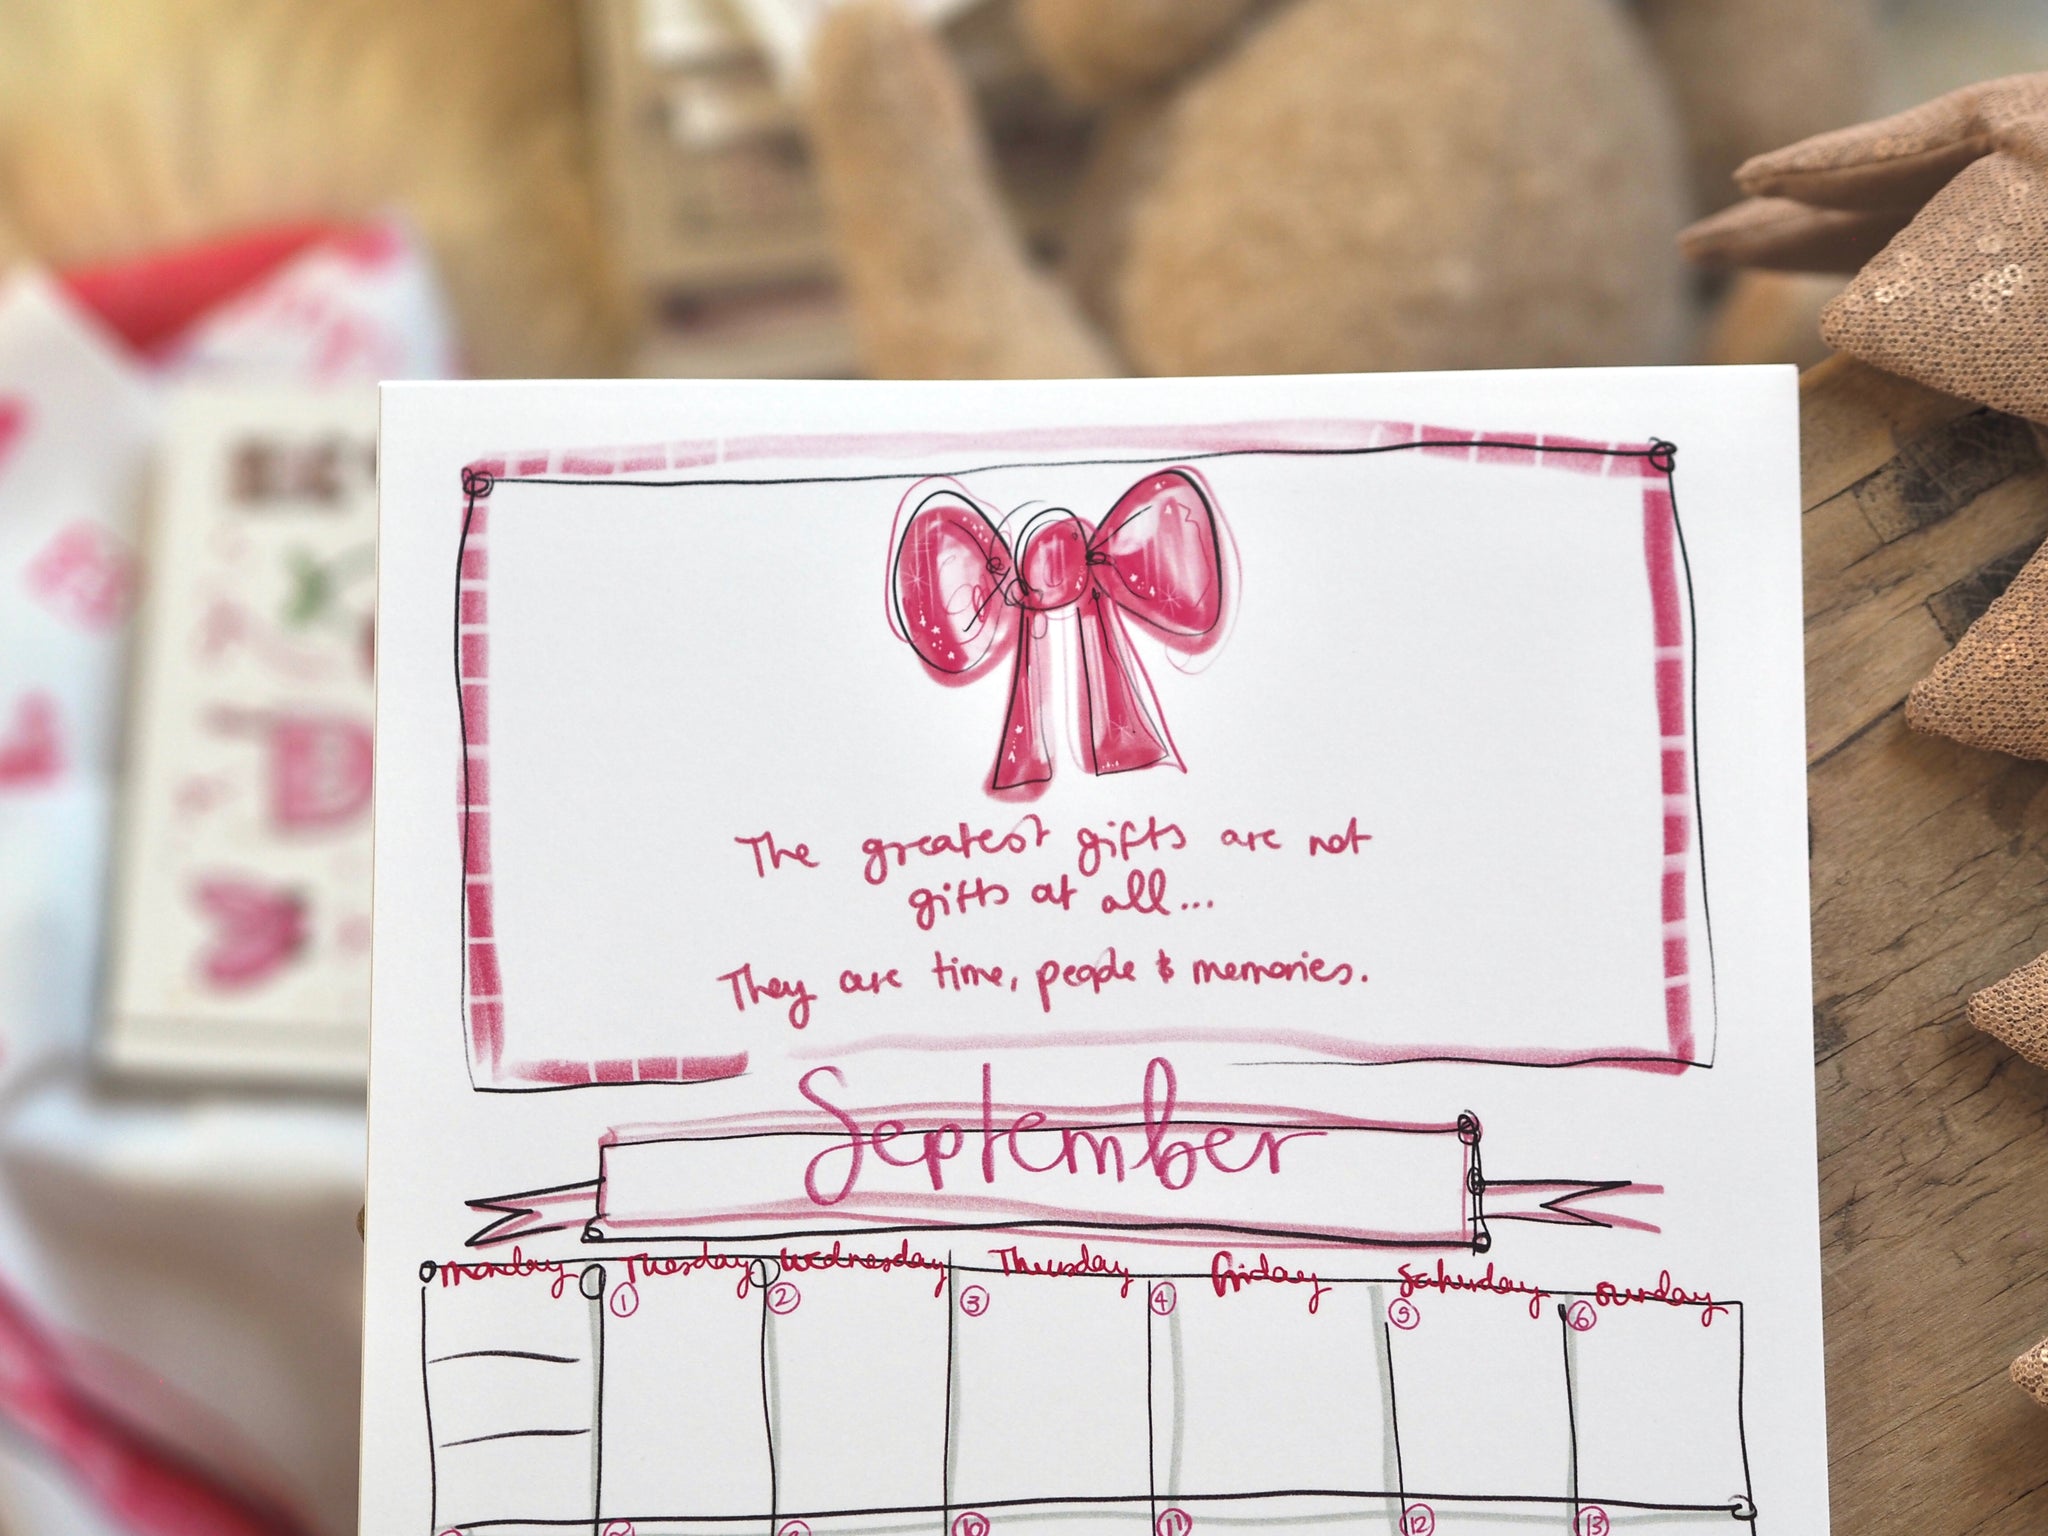 The greatest gifts are not
gifts at all...
They are time, people & memories.
September
Monday Tuesday Wednesday Thursday Friday Saturday Sunday
1 2 3 4 5 6
10 11 12 13